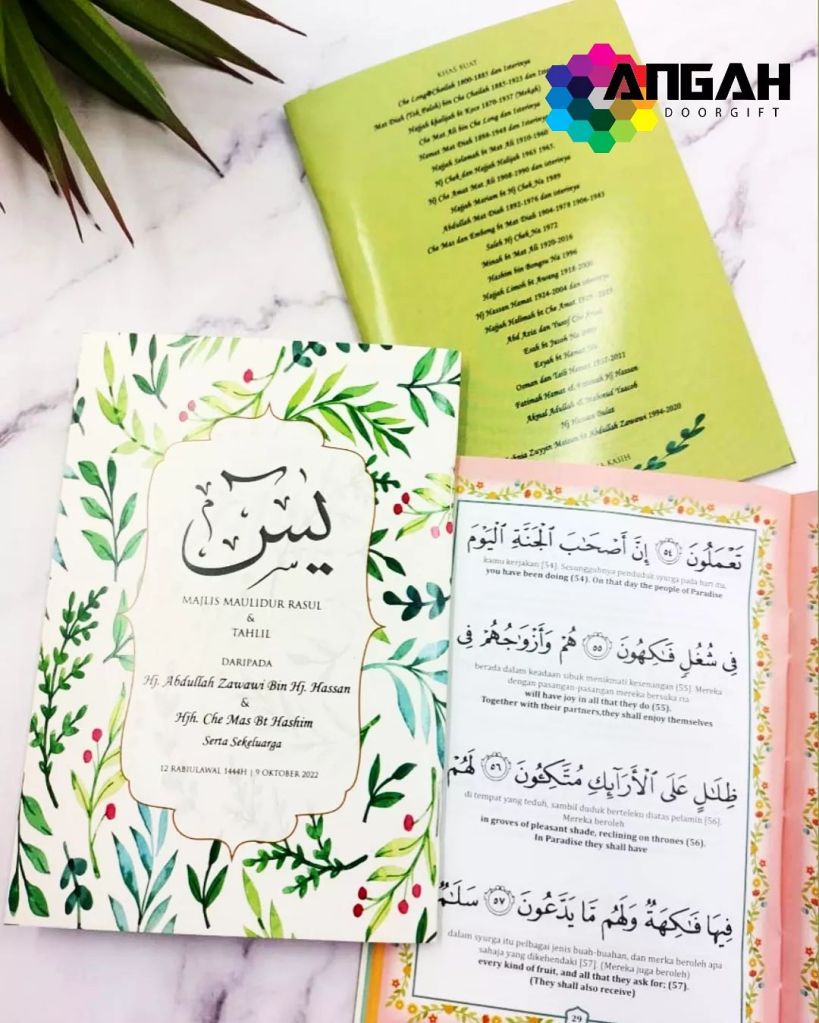 ANGAH
DOORGIFT
KHAS BUAT
Che Long@Cheilah 1800-1885 dan Isterinya
Mat Diah (Tok Paloh) bin Che Cheilah 1885-1925 dan
Hajjah Khalijah bt Koce 1870-1937 (Mekah)
Che Mat Ali bin Che Long dan Isterinya
Hamat Mat Diah 1898-1948 dan
Hajjah Salamah bt Mat Ali 1910-1960
Hj Chek dan Hajjah Halijah 1965 1965.
Hj Che Amat Mat Ali 1908-1990 dan isterinya
Hajjah Mariam bt Hj Chek Na 1989
Abdullah Mat Diah 1892-1976 dan isterinya
Che Mas dan Embong bt Mat Diah 1904-1978 1906-1943
Saleh Hj Chek Na 1972
Minah bt Mat Ali 1920-2016
Hashim bin Bongsu Na 1996
Hajjah Limah bt Awang 1918-2000
Hj Hassan Hamat 1924-2004 dan isterinya
Hajjah Halimah bt Che Amat
Abd Aziz dan Yusof Che Amat
Esah bt Jusoh Na
Esyah bt Hamat Na
Osman dan Taib Hamat 1937-2021
Fatimah Hamat & Fatimah Hj Hassan
Akmal Adullah & Mahozid Yaacob
Hj Hassan Bulat
Zawawi 1994-2020
KASIH
يس
MAJLIS MAULIDUR RASUL
&
TAHLIL
DARIPADA
Hj. Abdullah Zawawi Bin Hj. Hassan
&
Hjh. Che Mas Bt Hashim
Serta Sekeluarga
12 RABIULAWAL 1444H | 9 OKTOBER 2022
تَعْمَلُونَ ٥٤ إِنَّ أَصْحَٰبَ ٱلْجَنَّةِ ٱلْيَوْمَ
kamu kerjakan [54]. Sesungguhnya penduduk syurga pada hari itu,
you have been doing (54). On that day the people of Paradise
فِى شُغُلٍ فَٰكِهُونَ ٥٥ هُمْ وَأَزْوَٰجُهُمْ فِى
berada dalam keadaan sibuk menikmati kesenangan [55]. Mereka
dengan pasangan-pasangan mereka bersuka ria
will have joy in all that they do (55).
Together with their partners,they shall enjoy themselves
ظِلَٰلٍ عَلَى ٱلْأَرَآئِكِ مُتَّكِـُٔونَ ٥٦ لَهُمْ
di tempat yang teduh, sambil duduk berteleku diatas pelamin [56].
Mereka beroleh
in groves of pleasant shade, reclining on thrones (56).
In Paradise they shall have
فِيهَا فَٰكِهَةٌ وَلَهُم مَّا يَدَّعُونَ ٥٧ سَلَٰمٌ
dalam syurga itu pelbagai jenis buah-buahan, dan merka beroleh apa
sahaja yang dikehendaki [57]. (Mereka juga beroleh)
every kind of fruit, and all that they ask for; (57).
(They shall also receive)
29